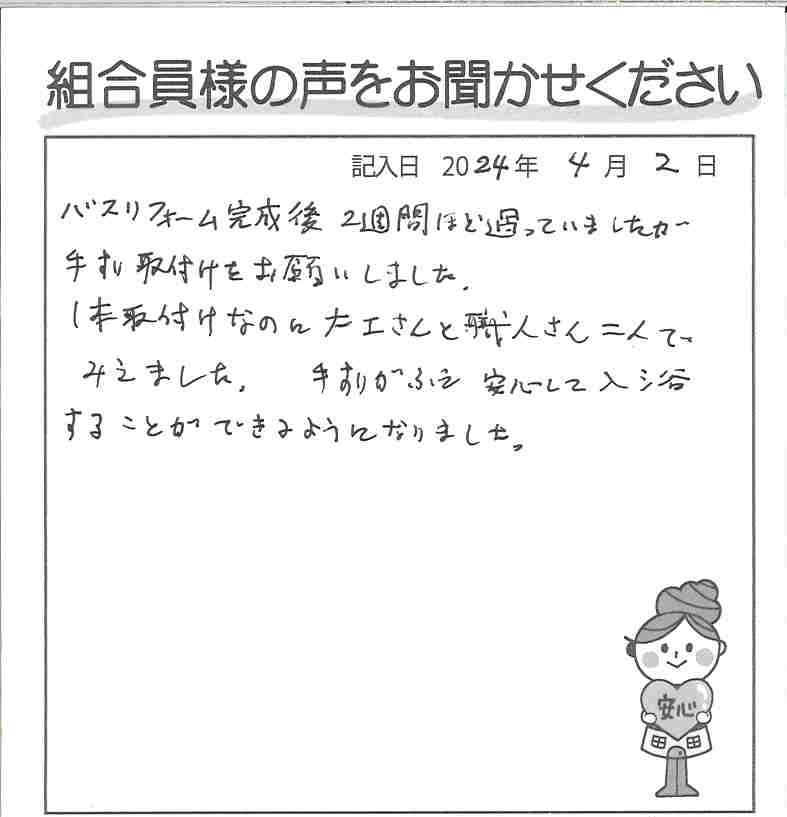 組合員様の声をお聞かせください
記入日 2024年 4月 2日
バスリフォーム完成後 2週間ほど過っていましたが
手すり取付けをお願いしました。
1本取付けなのに大工さんと職人さん二人で
みえました。 手すりがふえ 安心して入浴
することができるようになりました。
安心